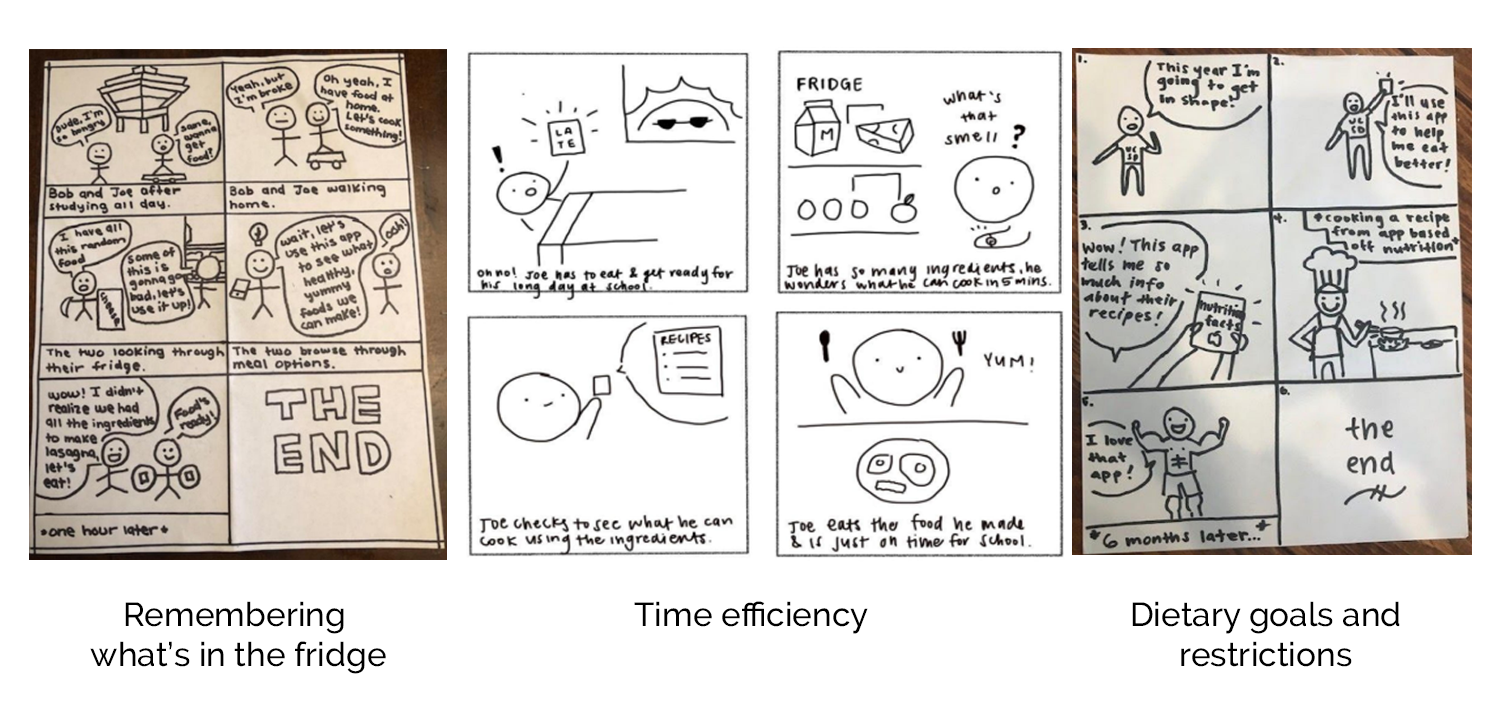 Dude, I'm
so hungry
same,
wanna
get
food?
Bob and Joe after
studying all day.
Yeah, but
I'm broke
Oh yeah, I
have food at
home.
Let's cook
something!
Bob and Joe walking
home.
I have all
this random
food
Some of
this is
gonna go
bad, let's
use it up!
The two looking through
their fridge.
wait, let's
use this app
to see what
healthy,
yummy
foods we
can make!
ooh!
The two browse through
meal options.
wow! I didn't
realize we had
all the ingredients
to make
lasagna,
let's
eat!
Food's
ready!
*one hour later*
THE
END
!
LA
TE
oh no! Joe has to eat & get ready for
his long day at school.
FRIDGE
M
what's
that
smell ?
Joe has so many ingredients, he
wonders what he can cook in 5 mins.
RECIPES
Joe checks to see what he can
cook using the ingredients.
YUM!
Joe eats the food he made
& is just on time for school.
1.
This year I'm
going to get
in shape!
UC
SD
2.
I'll use
this app
to help
me eat
better!
UC
SD
3.
Wow! This app
tells me so
much info
about their
recipes!
nutrition
facts
4.
*cooking a recipe
from app based
off nutrition*
5.
I love
that
app!
*6 months later...*
6.
the
end
Remembering
what's in the fridge
Time efficiency
Dietary goals and
restrictions